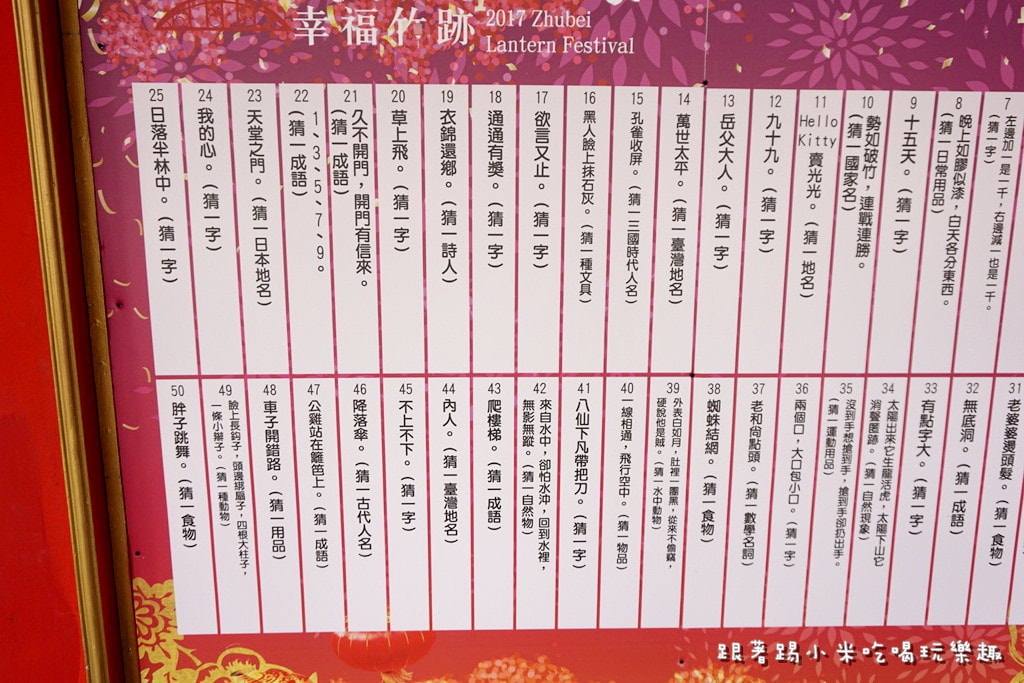 幸福竹跡
2017 Zhubei
Lantern Festival
7 左邊加一是一千，右邊減一也是一千。
（猜一字）
8 晚上如膠似漆，白天各分東西。
（猜一日常用品）
9 十五天。（猜一字）
10 勢如破竹，連戰連勝。
（猜一國家名）
11 Hello Kitty 賣光光。（猜一地名）
12 九十九。（猜一字）
13 岳父大人。（猜一字）
14 萬世太平。（猜一臺灣地名）
15 孔雀收屏。（猜一三國時代人名）
16 黑人臉上抹石灰。（猜一種文具）
17 欲言又止。（猜一字）
18 通通有獎。（猜一字）
19 衣錦還鄉。（猜一詩人）
20 草上飛。（猜一字）
21 久不開門，開門有信來。
（猜一成語）
22 1、3、5、7、9。
（猜一成語）
23 天堂之門。（猜一日本地名）
24 我的心。（猜一字）
25 日落半林中。（猜一字）
31 老婆婆燙頭髮。（猜一食物）
32 無底洞。（猜一成語）
33 有點字大。（猜一字）
34 太陽出來它生龍活虎，太陽下山它
消聲匿跡。（猜一自然現象）
35 沒到手想搶到手，搶到手卻扔出手。
（猜一運動用品）
36 兩個口，大口包小口。（猜一字）
37 老和尚點頭。（猜一數學名詞）
38 蜘蛛結網。（猜一食物）
39 外表白如月，肚裡一團黑，從來不偷竊，
硬說他是賊。（猜一水中動物）
40 一線相通，飛行空中。（猜一物品）
41 八仙下凡帶把刀。（猜一字）
42 來自水中，卻怕水沖，回到水裡，
無影無蹤。（猜一自然物）
43 爬樓梯。（猜一成語）
44 內人。（猜一臺灣地名）
45 不上不下。（猜一字）
46 降落傘。（猜一古代人名）
47 公雞站在籬笆上。（猜一成語）
48 車子開錯路。（猜一用品）
49 臉上長鈎子，頭邊綁扇子，四根大柱子，
一條小辮子。（猜一種動物）
50 胖子跳舞。（猜一食物）
跟著踢小米吃喝玩樂趣